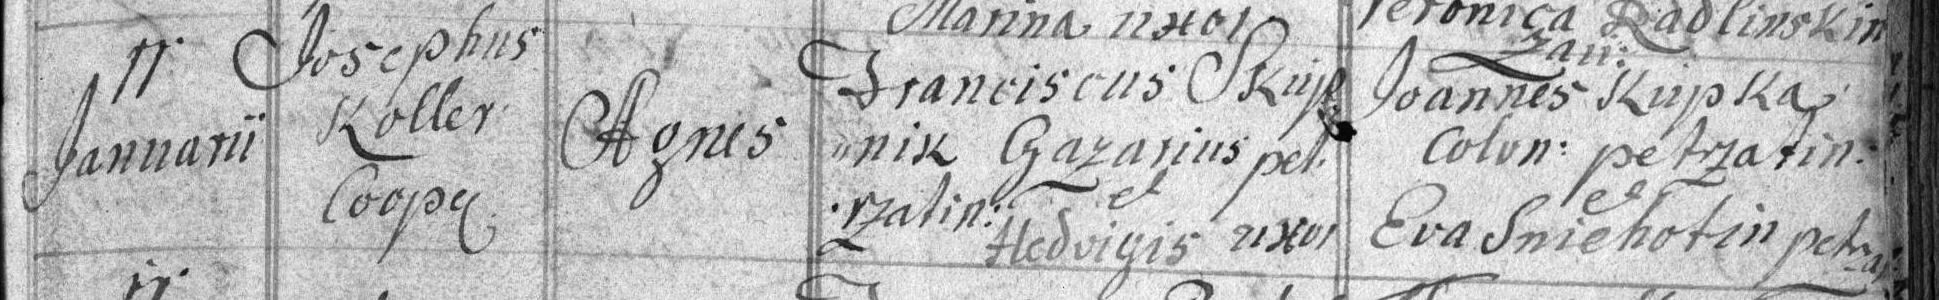 Marina uxor
Veronica Radlinskin
zari:
11
Januarii
Josephus
Koller
Coop
Agnes
Franciscus Skup
nik Gazarius pet
rzatin: et
Hedvigis uxor
Joannes Kupka
Colon: petrzatin:
et
Eva Sniehotin petrza
11